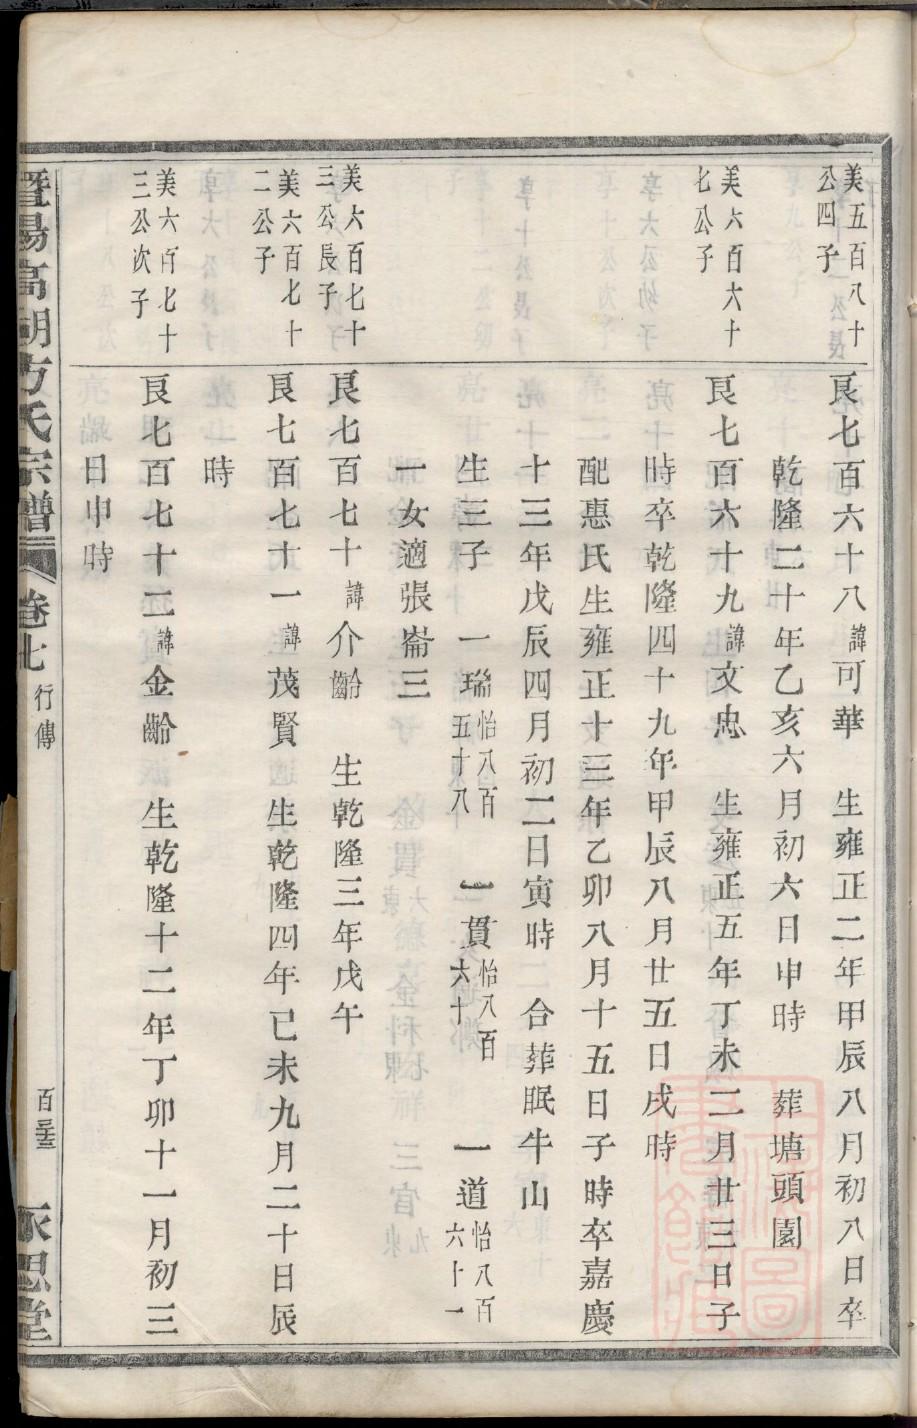 美五百八十
公四子
良七百六十八諱可華　生雍正二年甲辰八月初八日卒
乾隆二十年乙亥六月初六日申時　葬塘頭園
美六百六十
七公子
良七百六十九諱文忠　生雍正五年丁未二月廿三日子
時卒乾隆四十九年甲辰八月廿五日戌時
配惠氏生雍正十三年乙卯八月十五日子時卒嘉慶
十三年戊辰四月初二日寅時　合葬眠牛山
生三子　一瑞怡八百五十八　一貫怡八百六十　一道怡八百六十一
一女適張崙三
美六百七十
三公長子
良七百七十諱介齡　生乾隆三年戊午
美六百七十
二公子
良七百七十一諱茂賢　生乾隆四年己未九月二十日辰
時
美六百七十
三公次子
良七百七十二諱金齡　生乾隆十二年丁卯十一月初三
日申時
暨陽高湖方氏宗譜　卷七　行傳　永思堂